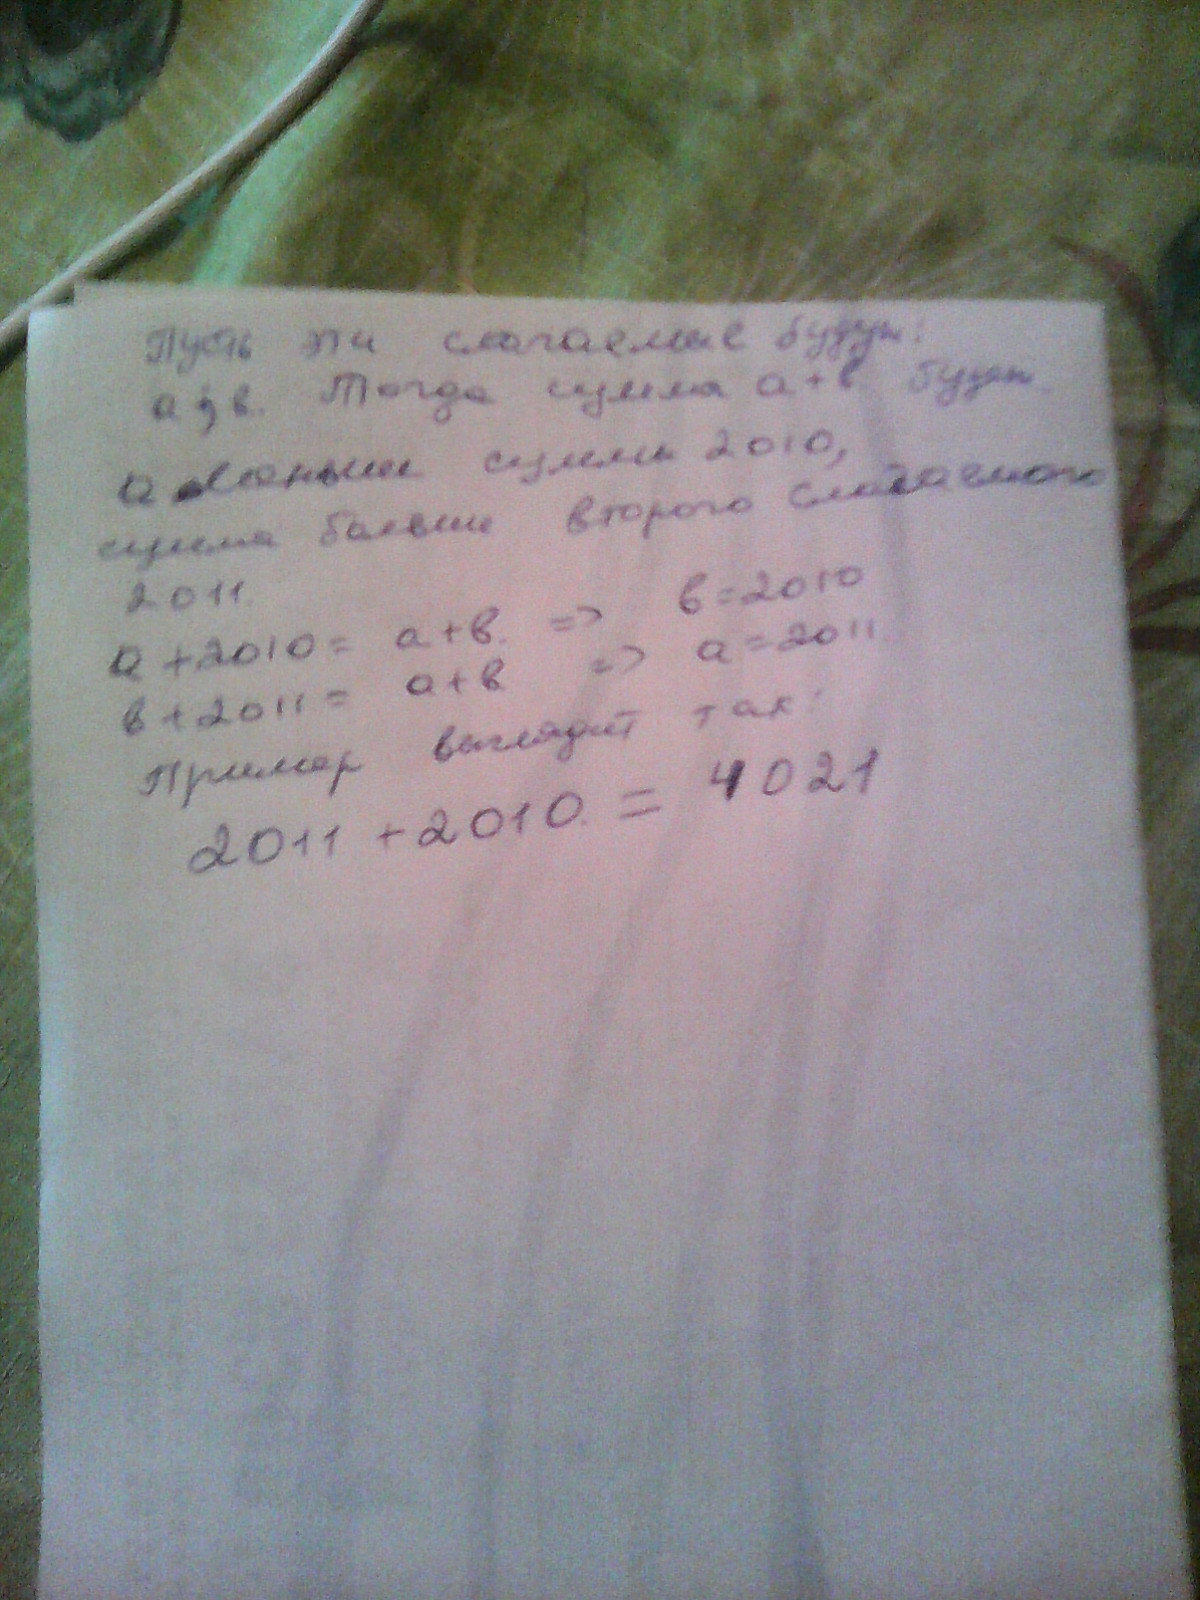 Пусть эти слагаемые будут:
а; в. Тогда сумма а+в будет
а меньше суммы 2010,
сумма больше второго слагаемого
2011.
а+2010= а+в. => в=2010
в+2011= а+в => а=2011.
Пример выглядит так:
2011+2010.= 4021